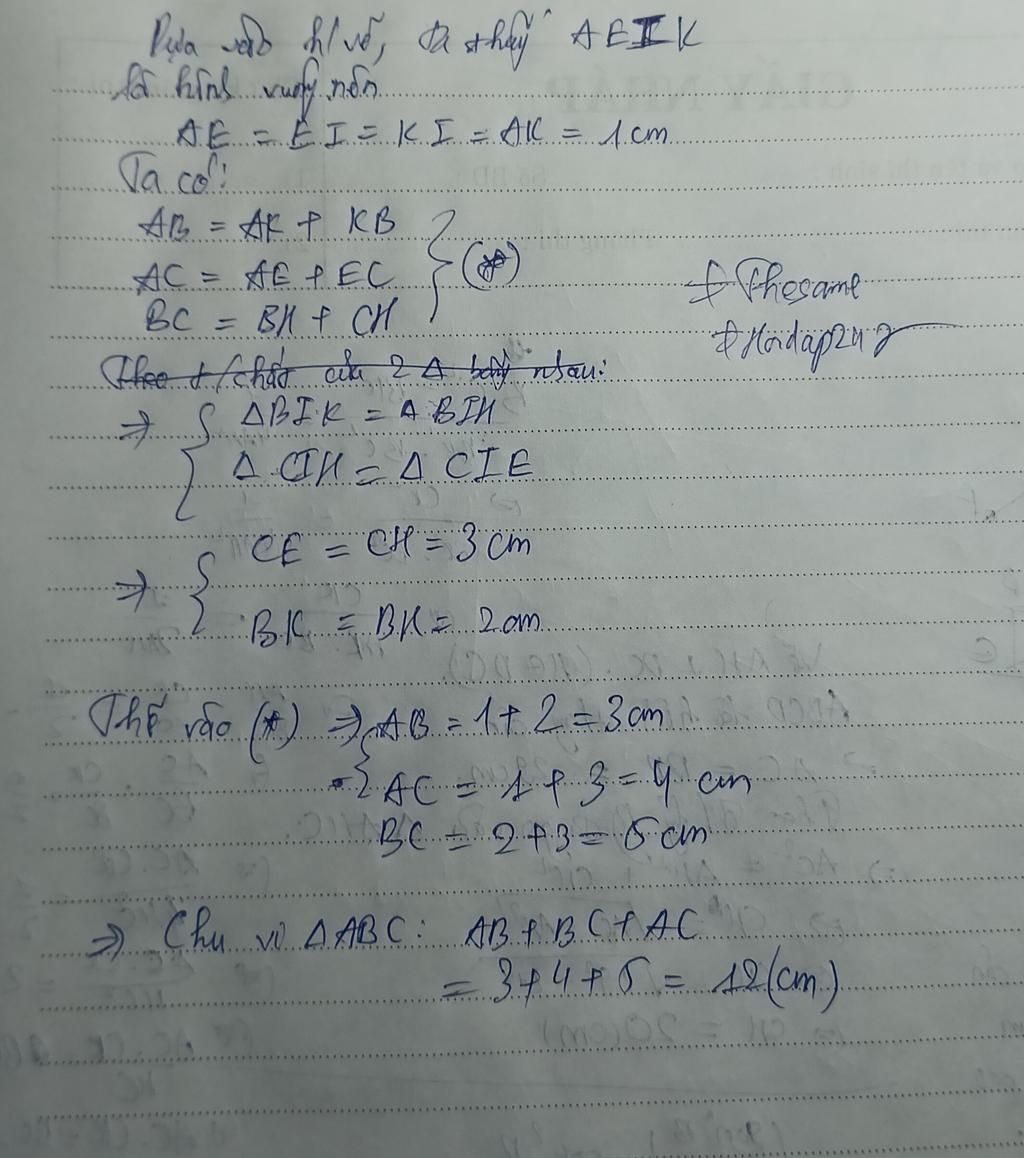 Dựa vào h/vẽ, ta thấy AEIK
là hình vuông nên
AE = EI = KI = AK = 1 cm
Ta có:
AB = AK + KB
AC = AE + EC
BC = BH + CH
(*)
# Thesame
# Hoidap247
Theo t/chất của 2 Δ bằng nhau:
⇒ { ΔBIK = ΔBIH
Δ CIH = Δ CIE
⇒ { CE = CH = 3 cm
BK = BH = 2 cm
Thế vào (*) ⇒ { AB = 1 + 2 = 3 cm
AC = 1 + 3 = 4 cm
BC = 2 + 3 = 5 cm
⇒ Chu vi ΔABC: AB + BC + AC
= 3 + 4 + 5 = 12 (cm)